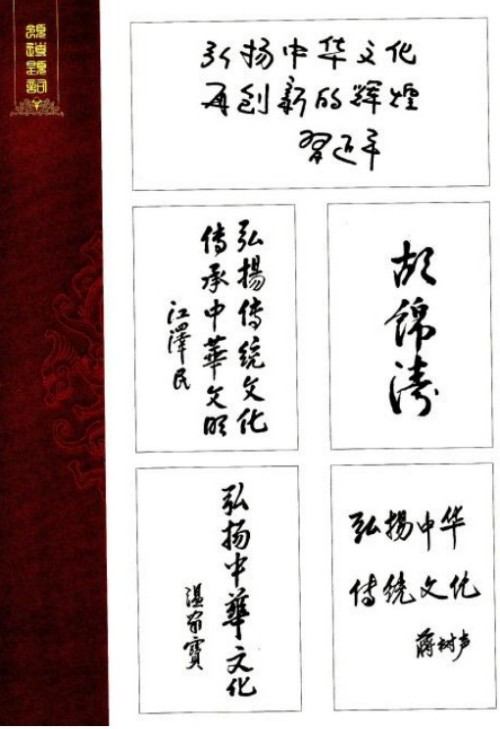 领导题词
弘扬中华文化
再创新的辉煌
習近平
弘揚傳統文化
传承中華文明
江澤民
胡錦濤
弘扬中華文化
温家寶
弘揚中华
傳统文化
蒋树声